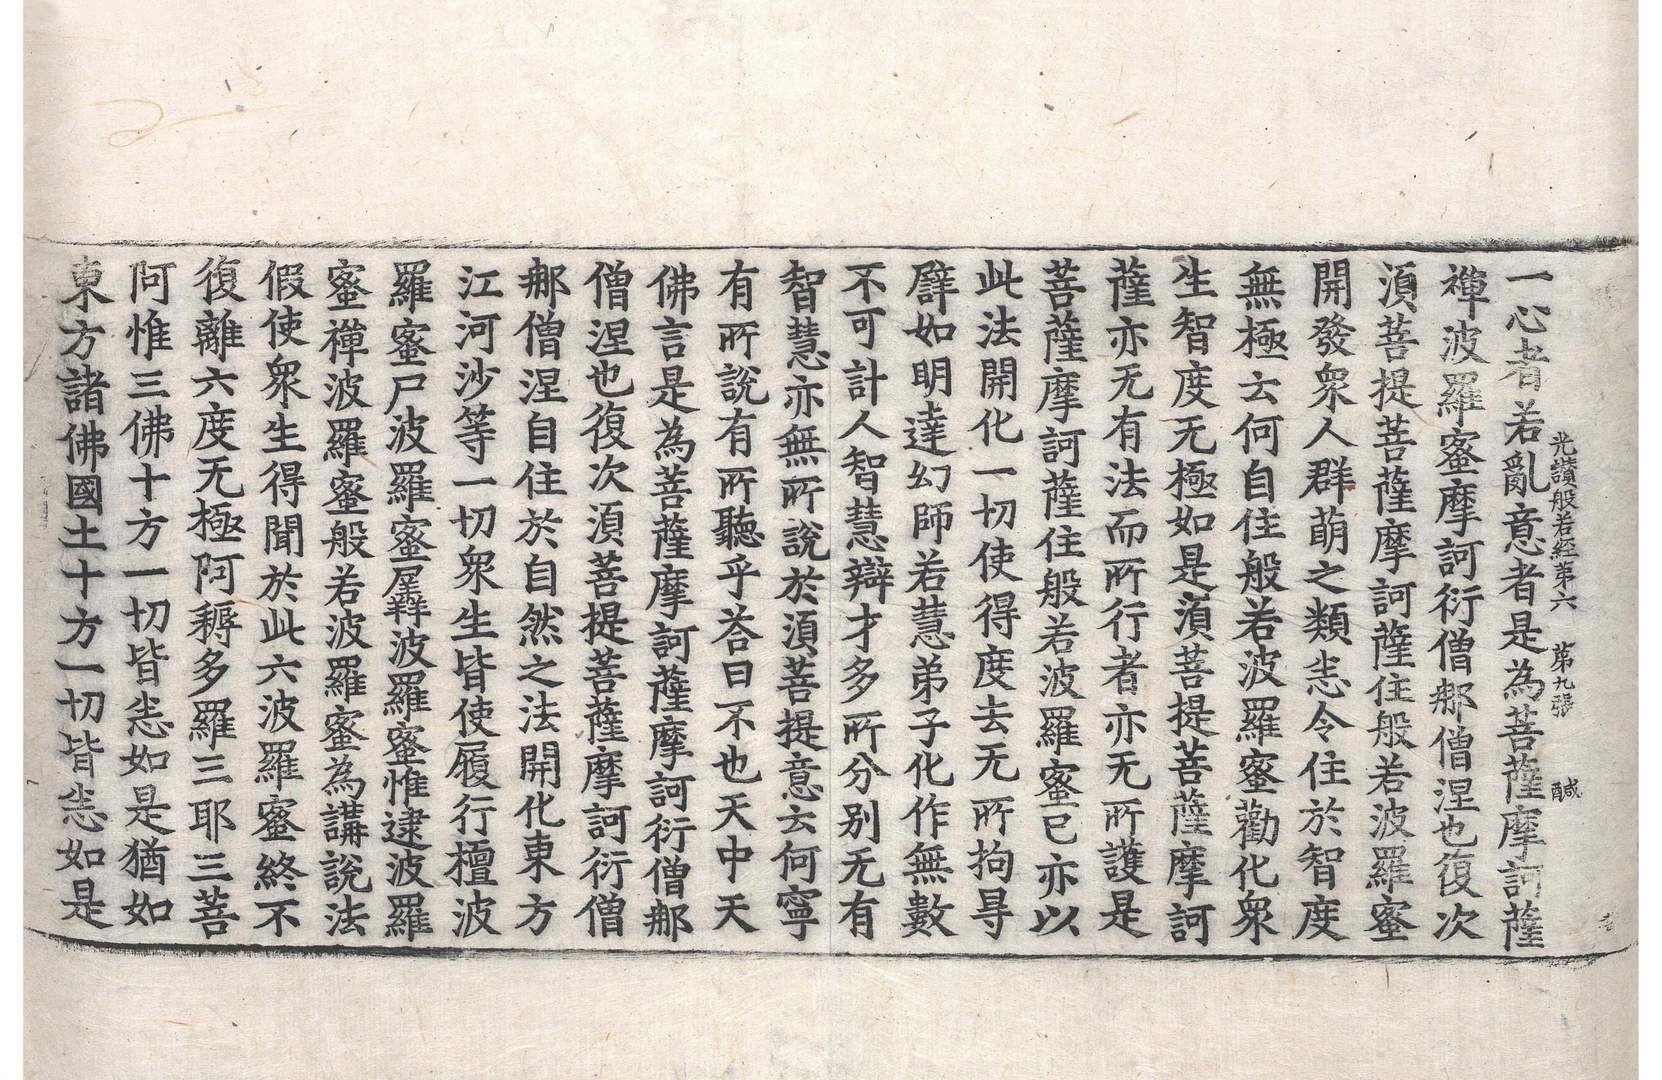 光讚般若經第六　第九張　醎
一心者若亂意者是為菩薩摩訶薩
禪波羅蜜摩訶衍僧那僧涅也復次
湏菩提菩薩摩訶薩住般若波羅蜜
開發衆人群萠之類悉令住於智度
無極云何自住般若波羅蜜勸化衆
生智度无極如是湏菩提菩薩摩訶
薩亦无有法而所行者亦无所護是
菩薩摩訶薩住般若波羅蜜已亦以
此法開化一切使得度去无所拘㝵
譬如明達幻師若慧弟子化作無數
不可計人智慧辯才多所分別无有
智慧亦無所說於湏菩提意云何寧
有所說有所聽乎荅曰不也天中天
佛言是為菩薩摩訶薩摩訶衍僧那
僧涅也復次湏菩提菩薩摩訶衍僧
那僧涅自住於自然之法開化東方
江河沙等一切衆生皆使履行檀波
羅蜜尸波羅蜜羼波羅蜜惟逮波羅
蜜禪波羅蜜般若波羅蜜為講說法
假使衆生得聞於此六波羅蜜終不
復離六度无極阿耨多羅三耶三菩
阿惟三佛十方一切皆悉如是猶如
東方諸佛國土十方一切皆悉如是